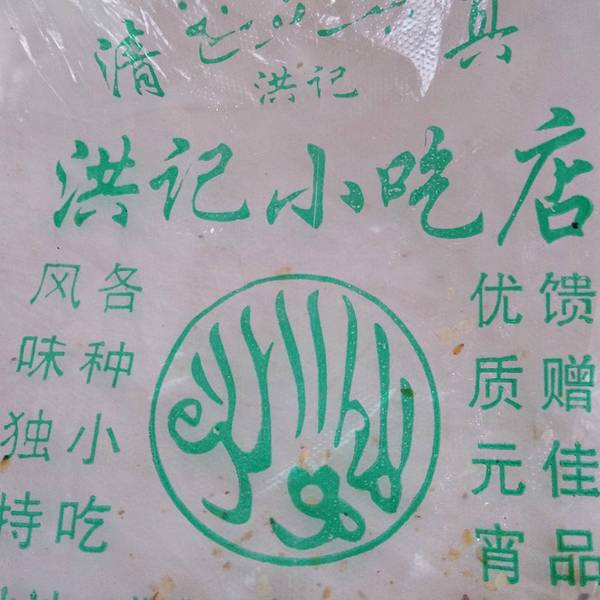 清 真
洪记
洪记小吃店
各种小吃
风味独特
馈赠佳品
优质元宵